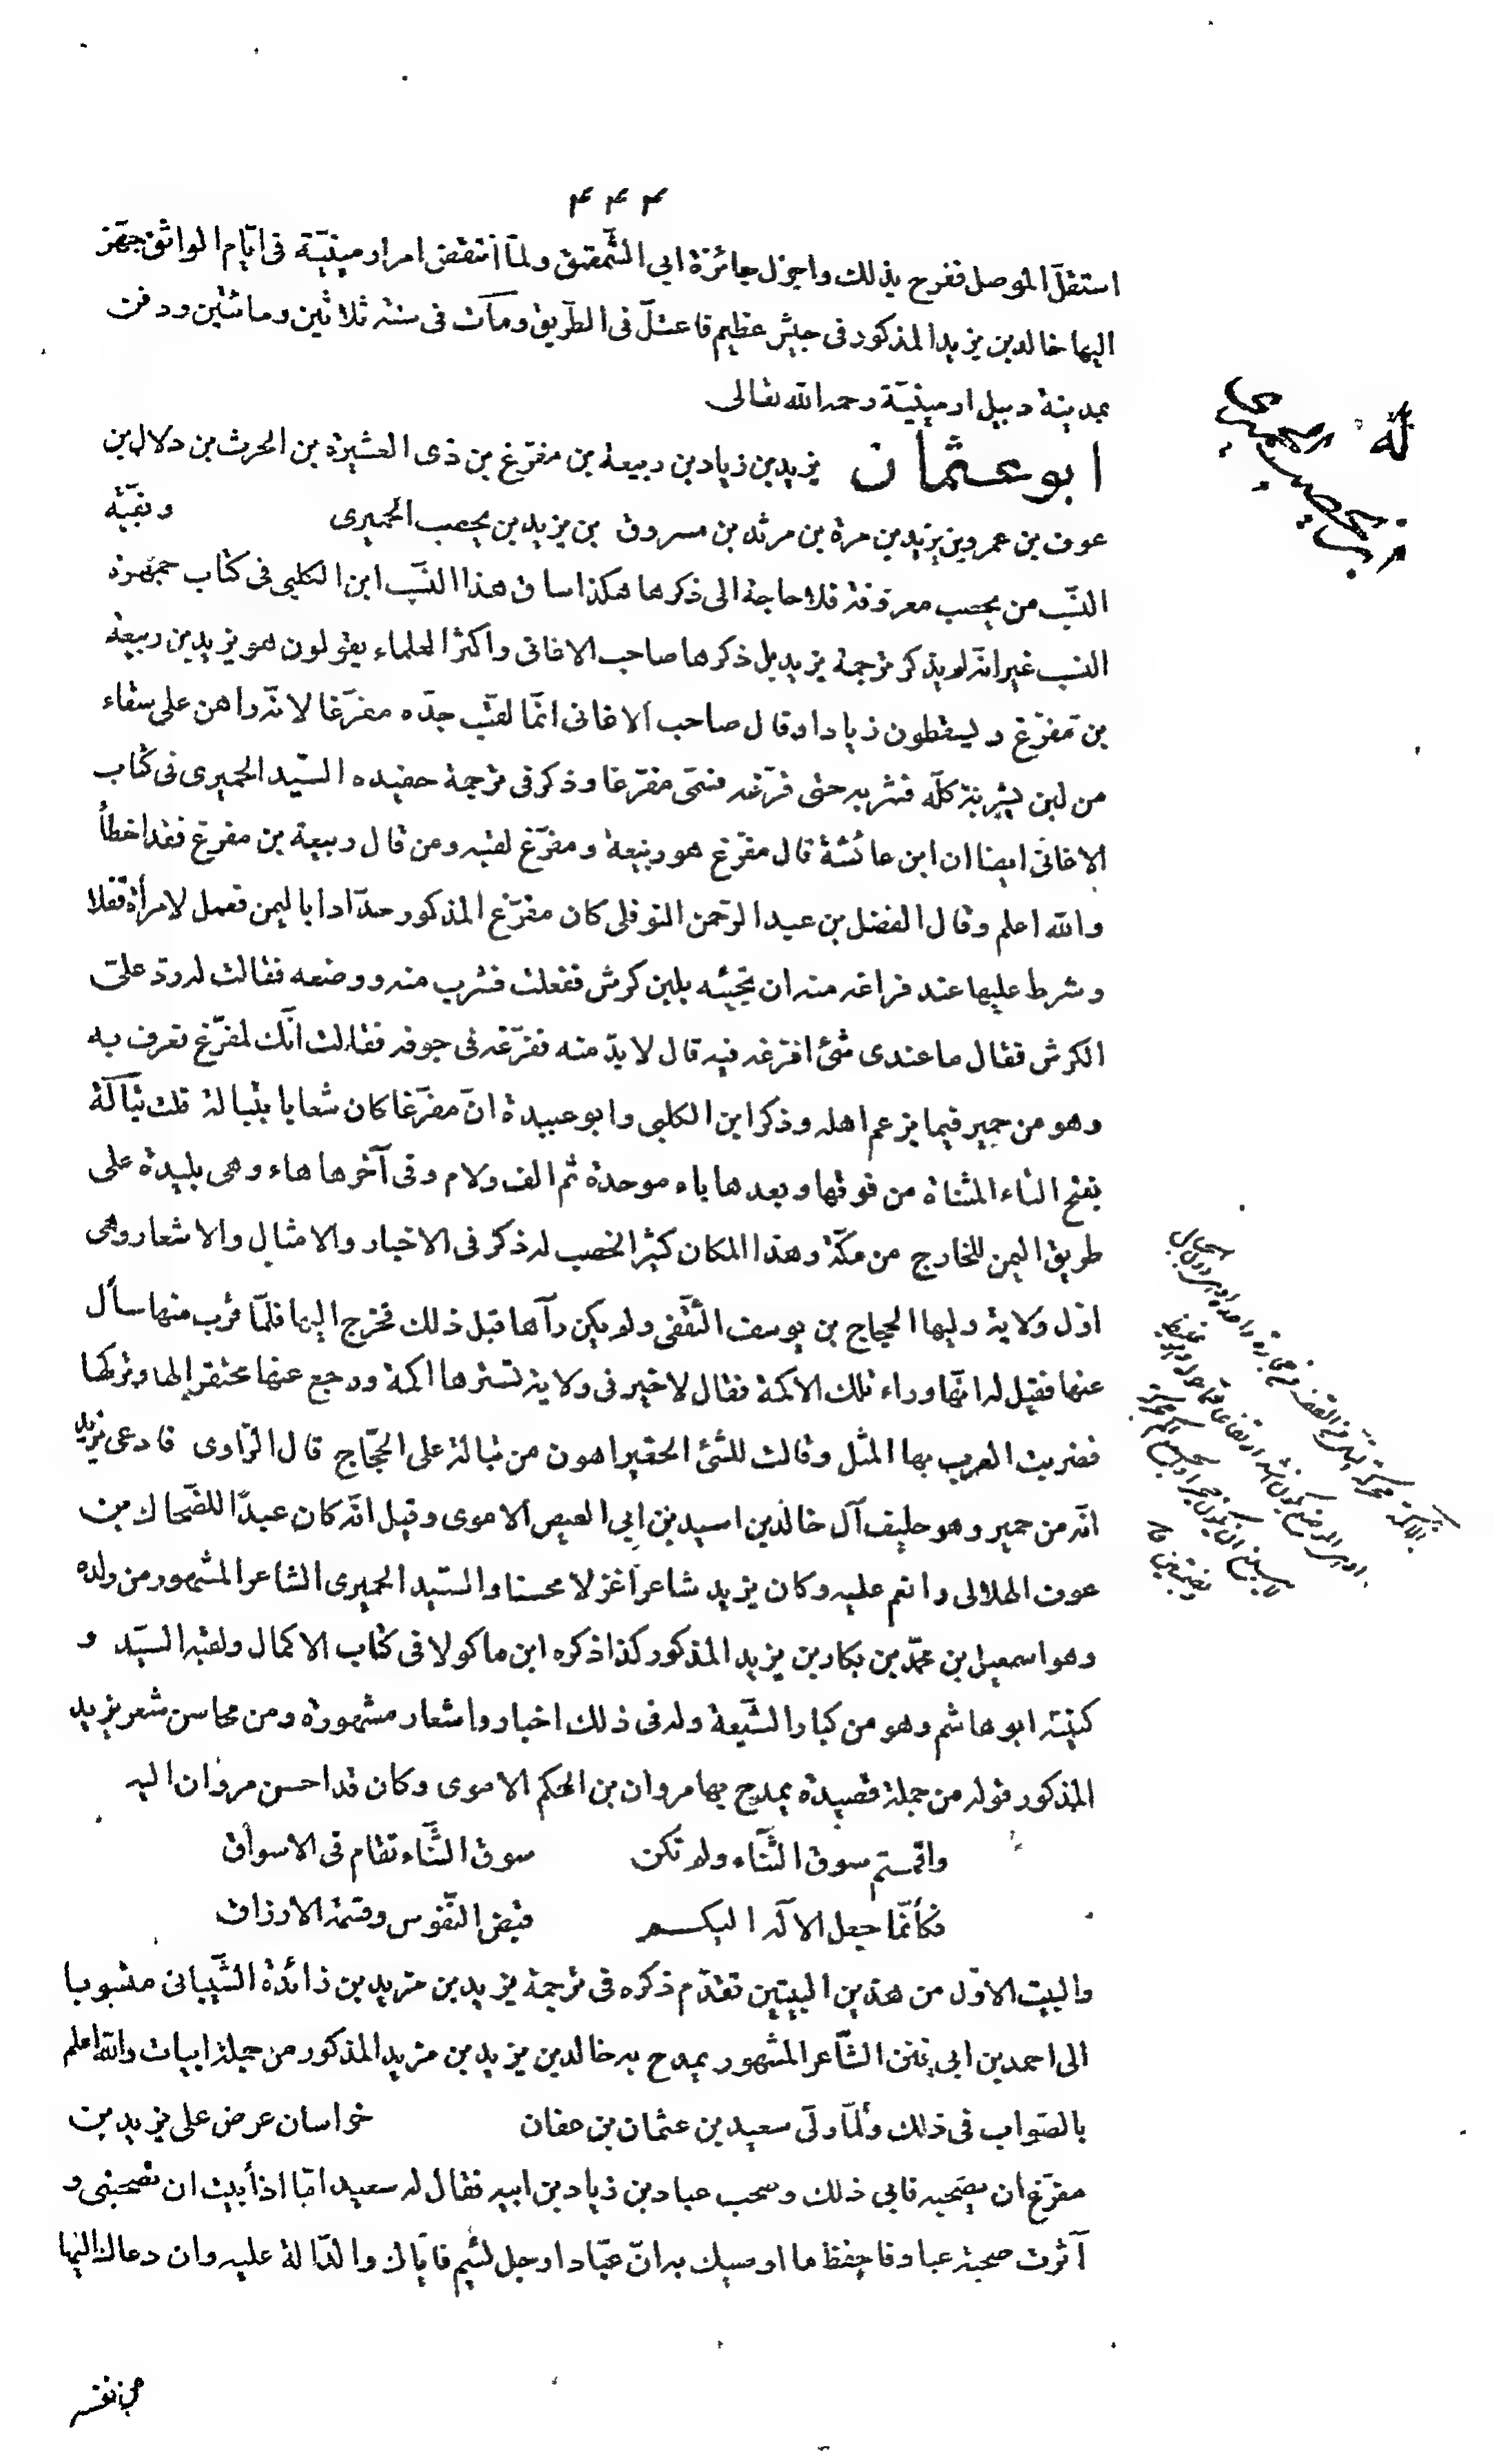 ۴۴۴
استقلّ الموصل ففرح بذلك واجزل جائزة ابي الشّمقمق ولمّا انتقض امر ارمينيّة فى ايّام الواثق جهّز
اليها خالد بن يزيد المذكور فى جيش عظيم فاعتلّ فى الطّريق ومات فى سنة ثلاثين ومائتين ودفن
بمدينة دبيل ارمينيّة رحمه الله تعالى
ابو عثمان يزيد بن زياد بن ربيعة بن مفرّغ بن ذى العشيرة بن الحرث بن دلال بن
عوف بن عمرو بن يزيد بن مرة بن مرثد بن مسروق بن يزيد بن يحصب الحميرى وبقيّة
النّسب من يحصب معروفة فلا حاجة الى ذكرها هكذا ساق هذا النّسب ابن الكلبى فى كتاب جمهرة
النسب غير انّه لم يذكر ترجمة يزيد بل ذكرها صاحب الاغانى واكثر العلماء يقولون هو يزيد بن ربيعة
بن مفرّغ ويسقطون زيادا وقال صاحب الاغانى انّما لقّب جدّه مفرّغا لانّه راهن على سقاء
من لبن يشربه كلّه فشربه حتى فرّغه فسمّى مفرّغا وذكر فى ترجمة حفيده السّيد الحميرى فى كتاب
الاغانى ايضا ان ابن عائشة قال مفرّغ هو ربيعة ومفرّغ لقبه ومن قال ربيعة بن مفرغ فقد اخطأ
والله اعلم وقال الفضل بن عبد الرّحمن النوفلى كان مفرّغ المذكور حدّادا باليمن فعمل لامرأة قفلا
وشرط عليها عند فراغه منه ان تجيئه بلبن كرش ففعلت فشرب منه ووضعه فقالت له ردّ علىّ
الكرش فقال ما عندى شئ افرّغه فيه قال لا بدّ منه ففرّغه فى جوفه فقالت انّك لمفرّغ تعرف به
وهو من حمير فيما يزعم اهله وذكر ابن الكلبى وابو عبيدة انّ مفرّغا كان شعابا بتبالة قلت تبالة
بفتح التاء المثناة من فوقها وبعدها باء موحدة ثم الف ولام وفى آخرها هاء وهى بليدة على
طريق اليمن للخارج من مكّة وهذا المكان كثير الخصب له ذكر فى الاخبار والامثال والاشعار وهى
اوّل ولاية وليها الحجاج بن يوسف الثّقفى ولم يكن رآها قبل ذلك فخرج اليها فلمّا قرب منها سأل
عنها فقيل له انّها وراء تلك الاكمة فقال لا خير فى ولاية تسترها اكمة ورجع عنها محتقرا لها وتركها
فضربت العرب بها المثل وقالت للشّئ الحقير اهون من تبالة على الحجّاج قال الرّاوى فادعى يزيد
انّه من حمير وهو حليف آل خالد بن اسيد بن ابي العيص الاموى وقيل انّه كان عبدًا للضّحاك بن
عوف الهلالى وانعم عليه وكان يزيد شاعرا غزلا محسنا والسّيد الحميرى الشاعر المشهور من ولده
وهو اسمعيل بن محمّد بن بكار بن يزيد المذكور كذا ذكره ابن ماكولا فى كتاب الاكمال ولقبه السيّد و
كنيته ابو هاشم وهو من كبار الشّيعة وله فى ذلك اخبار واشعار مشهورة ومن محاسن شعر يزيد
المذكور قوله من جملة قصيدة يمدح بها مروان بن الحكم الاموى وكان قد احسن مروان اليه
واقمتم سوق الثّناء ولم تكن سوق الثّناء تقام فى الاسواق
فكأنّما جعل الآله اليكم قبض النّفوس وقسمة الارزاق
والبيت الاوّل من هذين البيتين تقدّم ذكره فى ترجمة يزيد بن مزيد بن زائدة الشّيبانى منسوبا
الى احمد بن ابي فنن الشّاعر المشهور يمدح به خالد بن يزيد بن مزيد المذكور من جملة ابيات والله اعلم
بالصّواب فى ذلك ولمّا ولّى سعيد بن عثمان بن عفان خراسان عرض على يزيد بن
مفرّغ ان يصحبه فابى ذلك وصحب عباد بن زياد بن ابيه فقال له سعيد امّا اذ أبيت ان تصحبنى و
آثرت صحبة عباد فاحفظ ما اوصيك به انّ عبّادا رجل لئيم فايّاك والدّالة عليه وان دعاك اليها
من نفسه